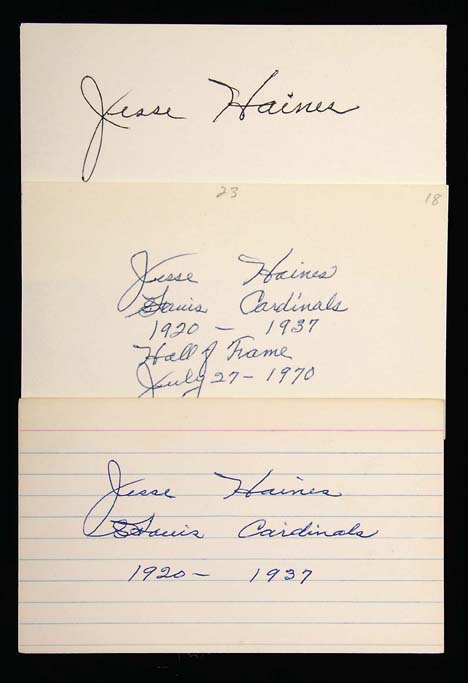 Jesse Haines
23
18
Jesse Haines
St Louis Cardinals
1920 – 1937
Hall of Fame
July 27 – 1970
Jesse Haines
St Louis Cardinals
1920 – 1937